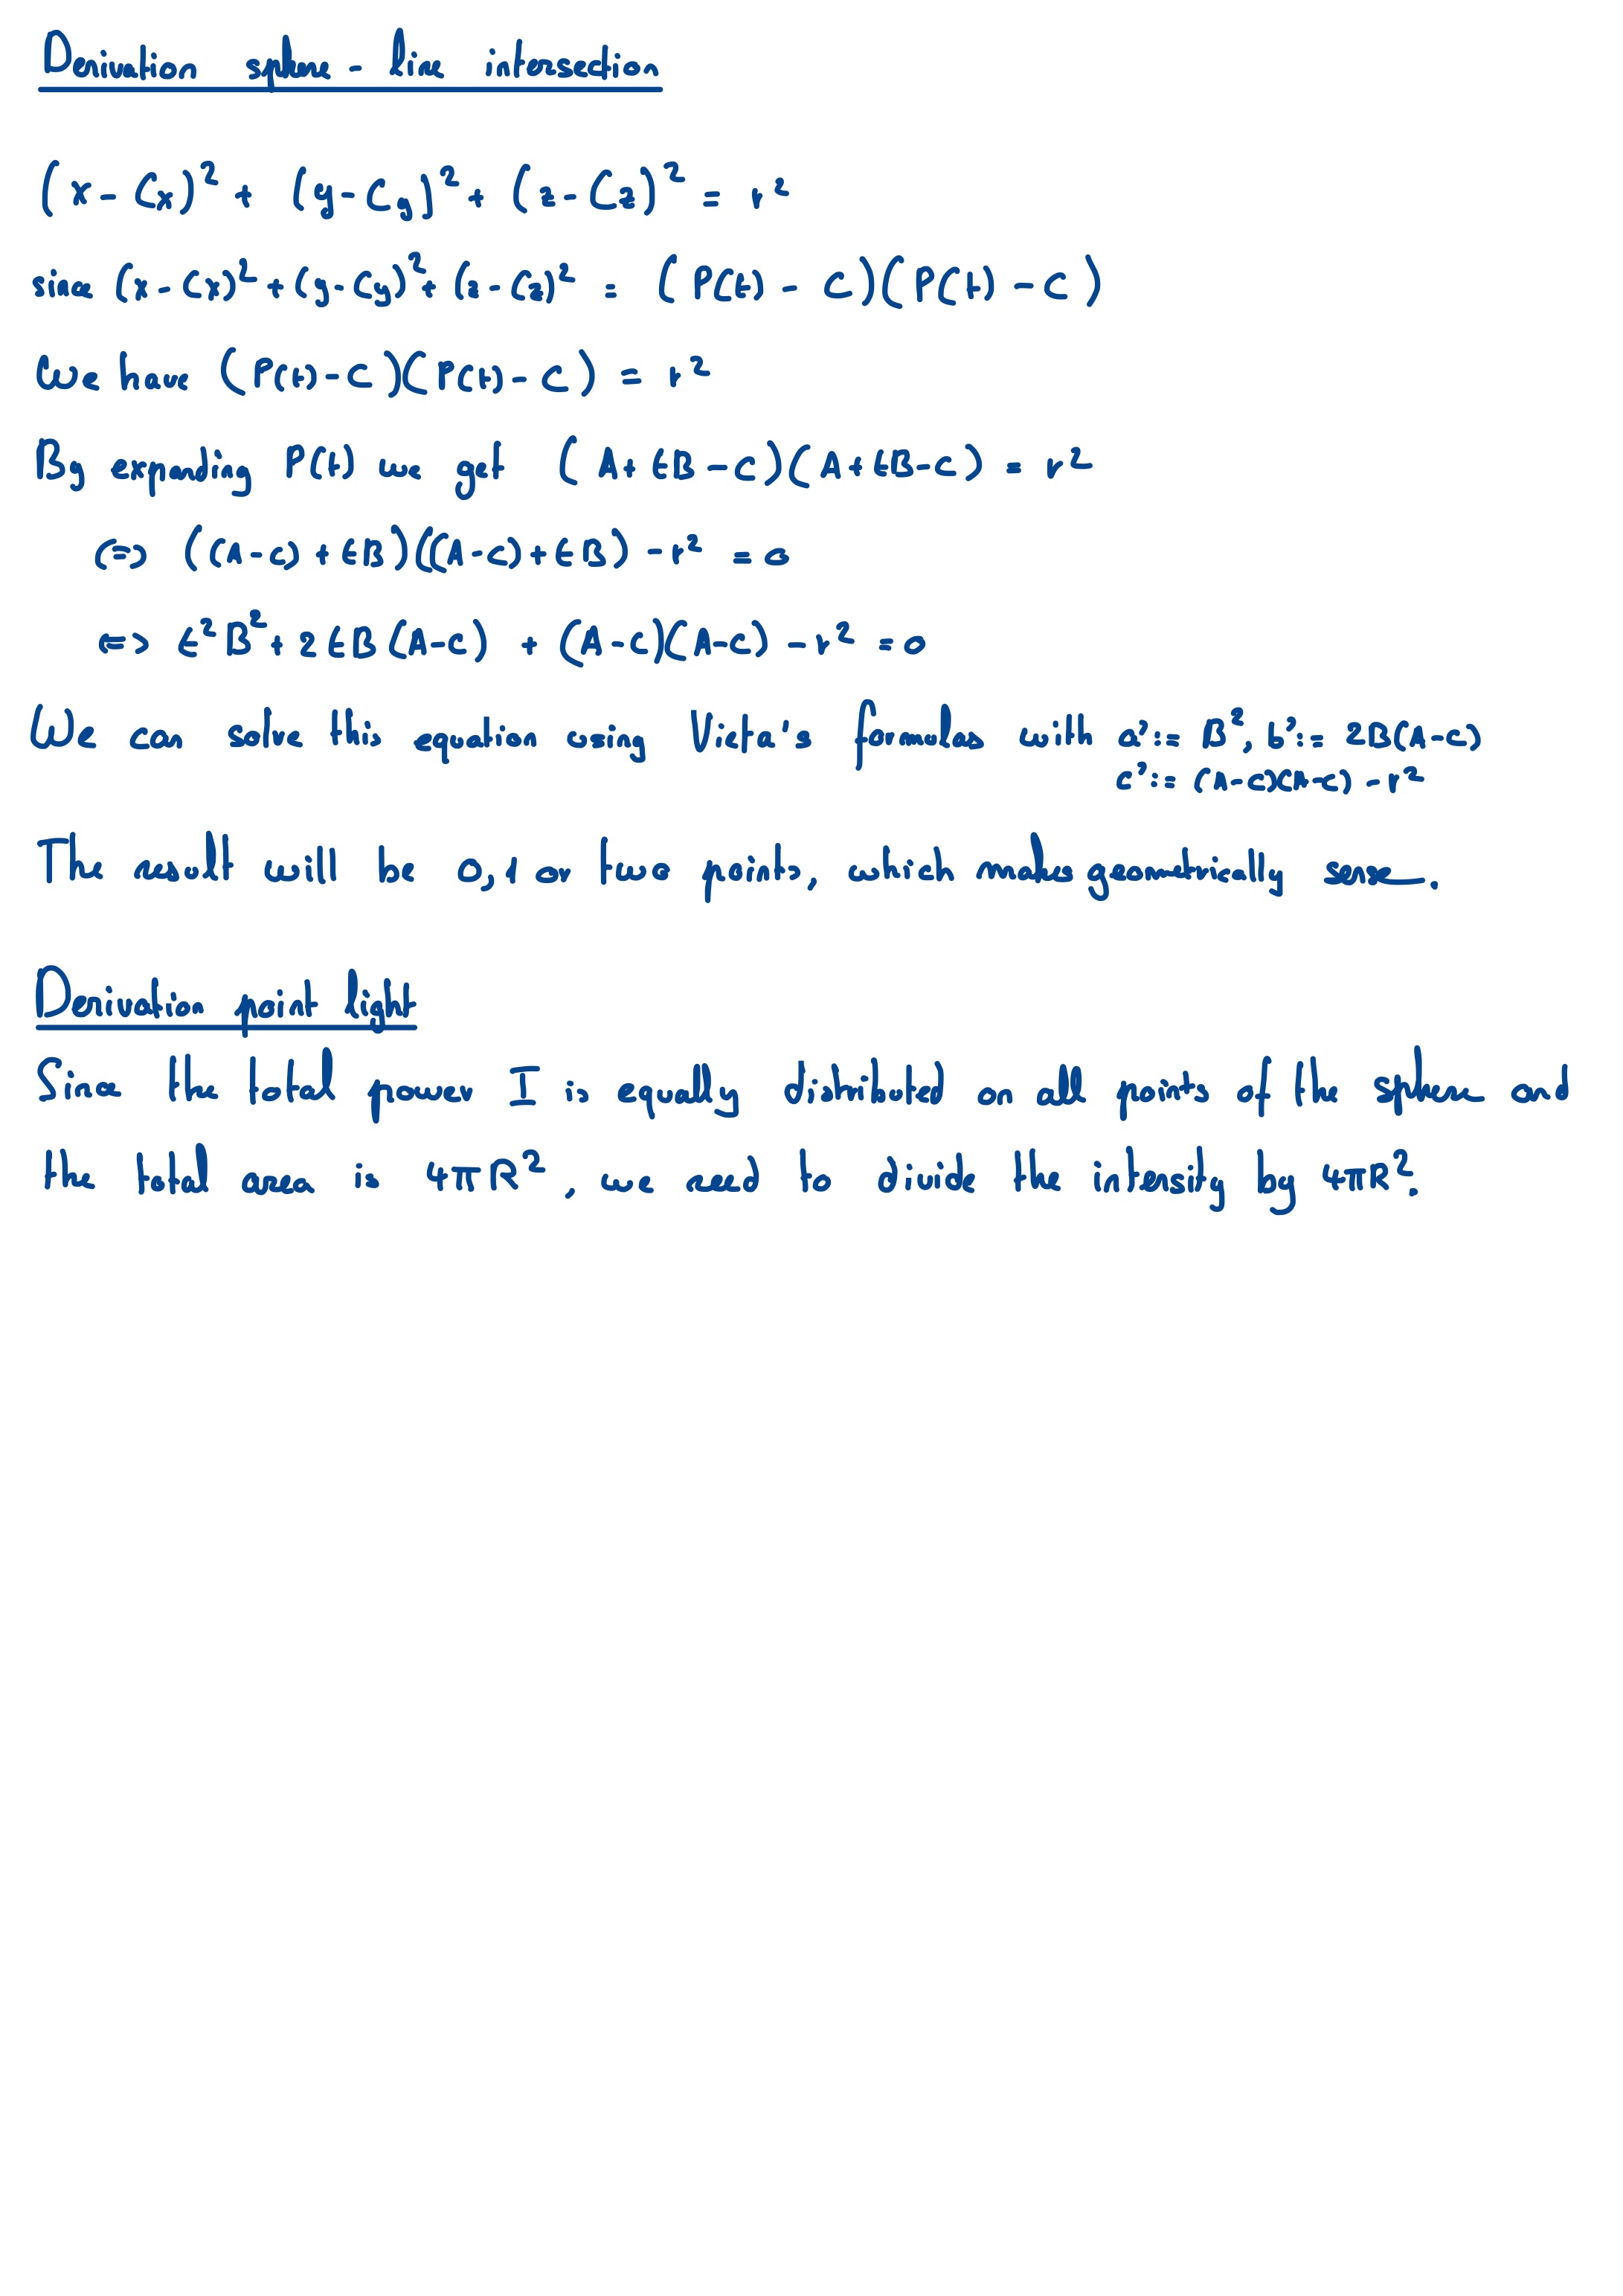 Derivation sphere - line intersection
(x - Cx)² + (y - Cy)² + (z - Cz)² = r²
since (x - Cx)² + (y - Cy)² + (z - Cz)² = (P(t) - C)(P(t) - C)
We have (P(t) - C)(P(t) - C) = r²
By expanding P(t) we get (A + tB - C)(A + tB - C) = r²
(=> ((A - C) + tB)((A - C) + tB) - r² = 0
<=> t²B² + 2tB(A - C) + (A - C)(A - C) - r² = 0
We can solve this equation using Vieta's formulas with a' := B², b' := 2B(A - C)
c' := (A - C)(A - C) - r²
The result will be 0, 1 or two points, which makes geometrically sense.
Derivation point light
Since the total power I is equally distributed on all points of the sphere and
the total area is 4πR², we need to divide the intensity by 4πR².